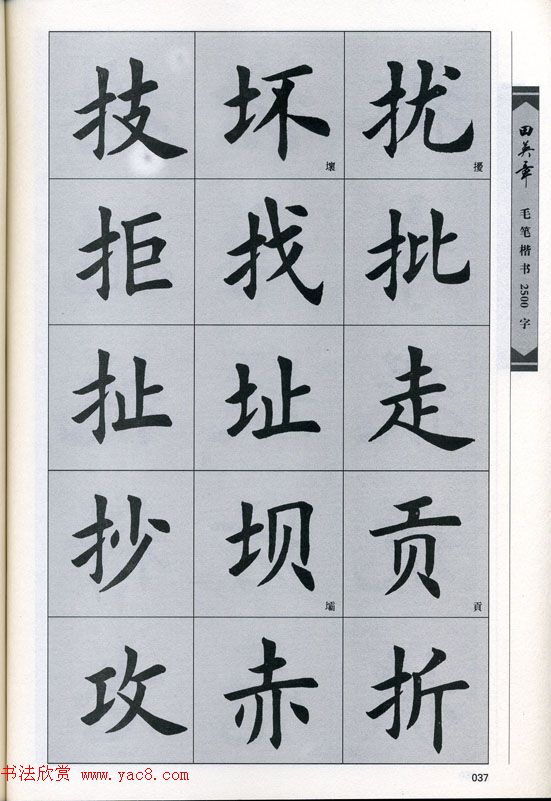 技 坏 扰
壞 擾
拒 找 批
扯 址 走
抄 坝 贡
壩 貢
攻 赤 折
田英章 毛笔楷书 2500 字
书法欣赏 www.yac8.com
037